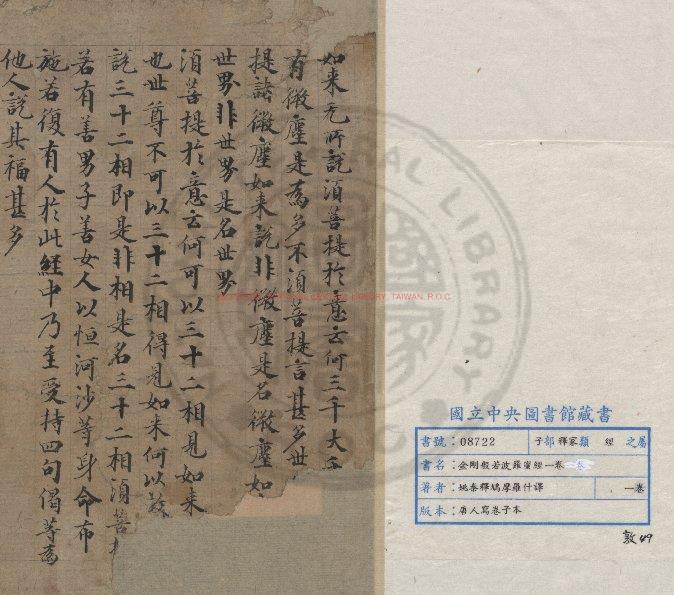 如来无所說湏菩提扵意云何三千大千
有微塵是為多不湏菩提言甚多世
提諸微塵如来說非微塵是名微塵如
世界非世界是名世界
湏菩提扵意云何可以三十二相見如来
也世尊不可以三十二相得見如来何以故
說三十二相即是非相是名三十二相湏菩提
若有善男子善女人以恒河沙等身命布
施若復有人扵此經中乃至受持四句偈等為
他人說其福甚多
國立中央圖書館藏書
書號：08722 子部 釋家類 經之屬
書名：金剛般若波羅蜜經一卷
著者：姚秦釋鳩摩羅什譯 一卷
版本：唐人寫卷子本
敦49
NATIONAL CENTRAL LIBRARY, TAIWAN, R.O.C